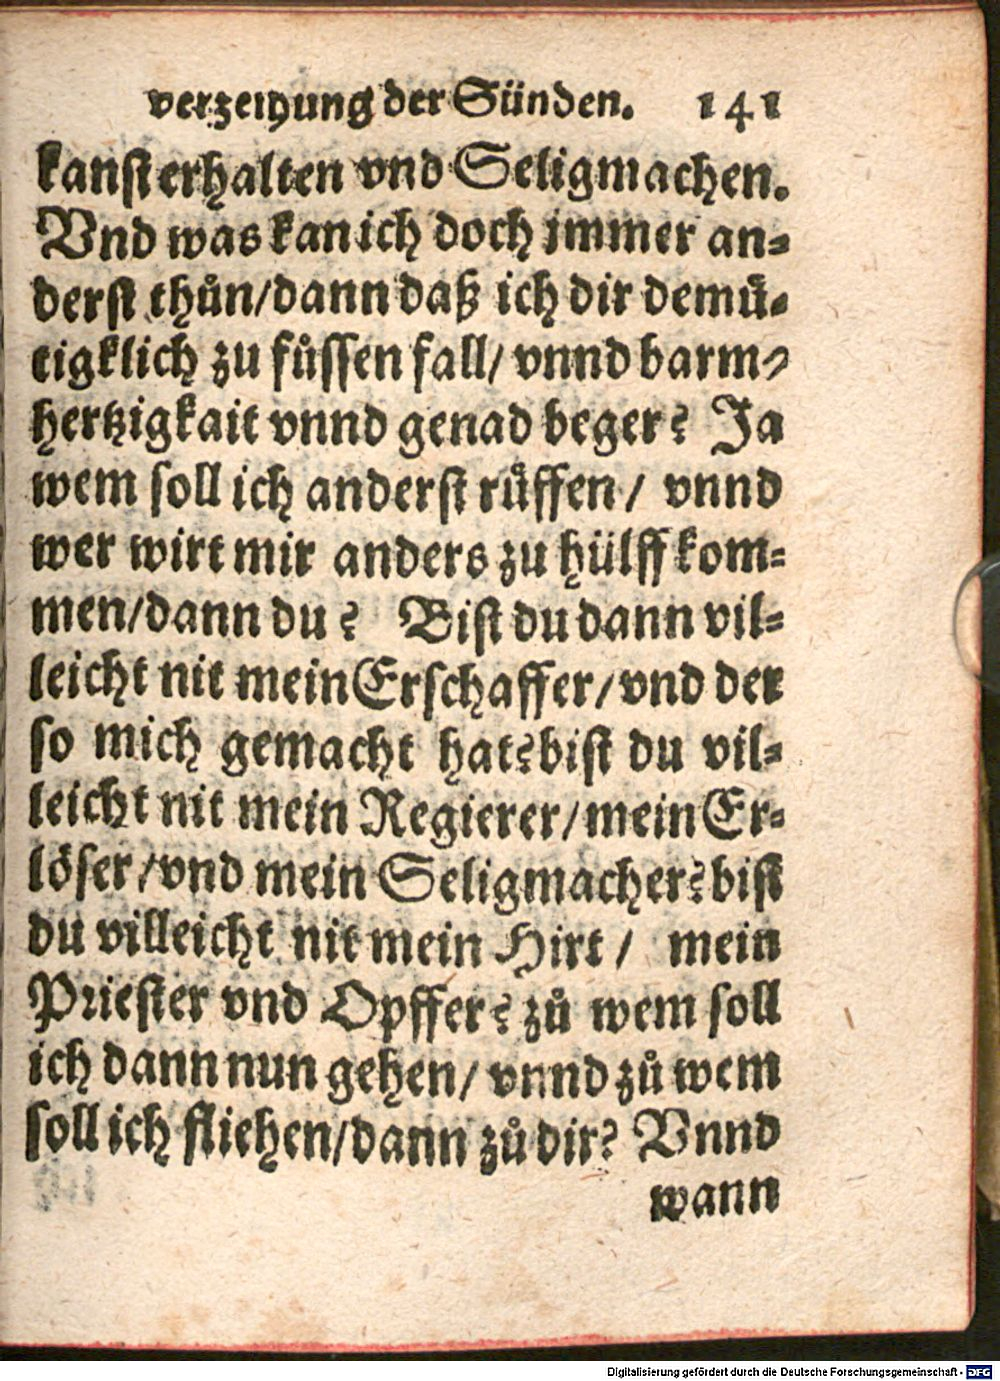 verzeihung der Sünden. 141
kanst erhalten vnd Seligmachen.
Vnd was kan ich doch immer an-
derst thůn/dann daß ich dir demů-
tigklich zu fůssen fall/ vnnd barm-
hertzigkait vnnd genad beger? Ja
wem soll ich anderst růffen/ vnnd
wer wirt mir anders zu hülff kom-
men/dann du? Bist du dann vil-
leicht nit mein Erschaffer/vnd der
so mich gemacht hat? bist du vil-
leicht nit mein Regierer/mein Er-
löser/vnd mein Seligmacher? bist
du villeicht nit mein Hirt/ mein
Priester vnd Opffer? zů wem soll
ich dann nun gehen/ vnnd zů wem
soll ich fliehen/dann zů dir? Vnnd
wann
Digitalisierung gefördert durch die Deutsche Forschungsgemeinschaft - DFG